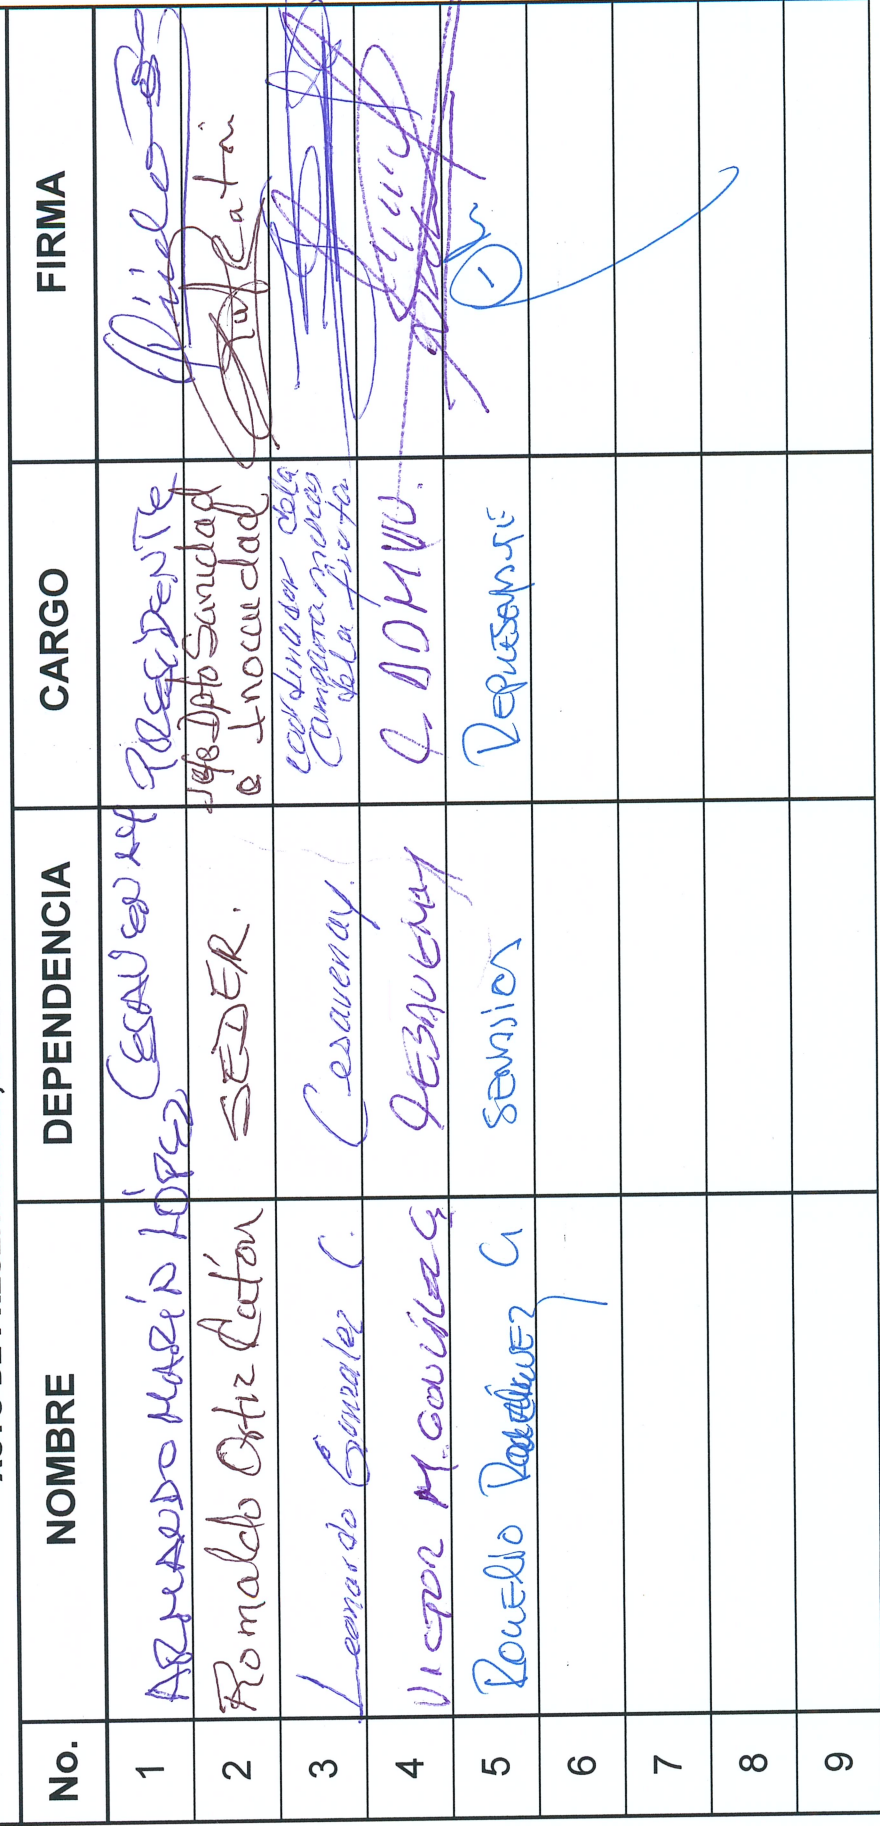 No. NOMBRE DEPENDENCIA CARGO FIRMA
1 ARMANDO MARÍN LÓPEZ CESAVENAY PRESIDENTE
2 Romaldo Ortiz Catón SEDER. Jefe Dpto Sanidad
e Inocuidad
3 Leonardo González C. Cesavenay. Coordinador de la
Campaña moscas
de la fruta
4 VICTOR M. CESAVENAY
5 ROGELIO RODRÍGUEZ G SENASICA REPRESENTANTE
6
7
8
9